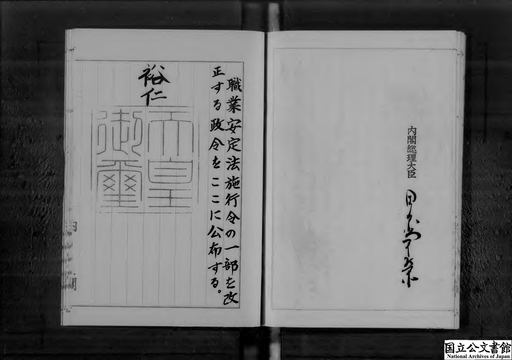 内閣総理大臣
職業安定法施行令の一部を改
正する政令をここに公布する。
裕仁
天皇
御璽
国立公文書館
National Archives of Japan